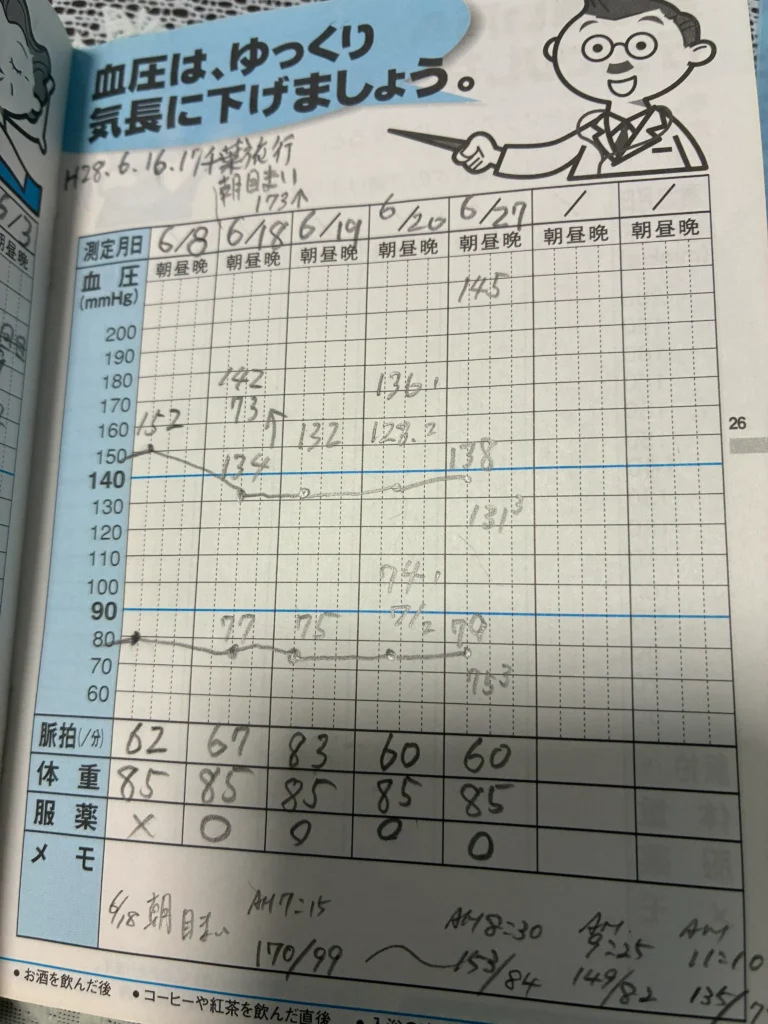 血圧は、ゆっくり
気長に下げましょう。
H28.6.16.17千葉旅行
朝目まい
173↑
測定月日 6/8 6/18 6/19 6/20 6/27 / /
朝昼晩 朝昼晩 朝昼晩 朝昼晩 朝昼晩 朝昼晩 朝昼晩
血圧
(mmHg)
145
200
190
180 142 136.1
170 73 ↑
160 152 132 128.2
150 134 138
140
130 131³
120
110
100 74.1
90 71.2
80 77 75 79
70 75³
60
脈拍(/分) 62 67 83 60 60
体重 85 85 85 85 85
服薬 × 0 0 0 0
メモ
6/18 朝目まい AH7:15 AH8:30 AH 9:25 AH 11:10
170/99 153/84 149/82 135/7
•お酒を飲んだ後 •コーヒーや紅茶を飲んだ直後
26
5/3
朝昼晩